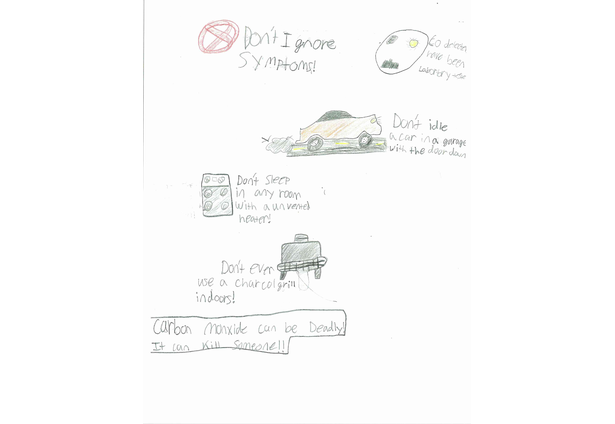 Don't Ignore
Symptoms!
Go detector
have been
Laboratory
Don't idle
a car in a garage
with the door down
Don't sleep
in any room
with a unvented
heater!
Don't ever
use a charcol grill
indoors!
Carbon Monxide can be Deadly!
It can Kill Someone!!